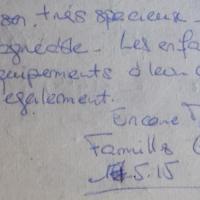 son très spacieux -
agréable. Les enfa
quipements d'leur
également.
Encore
Famille
5.15